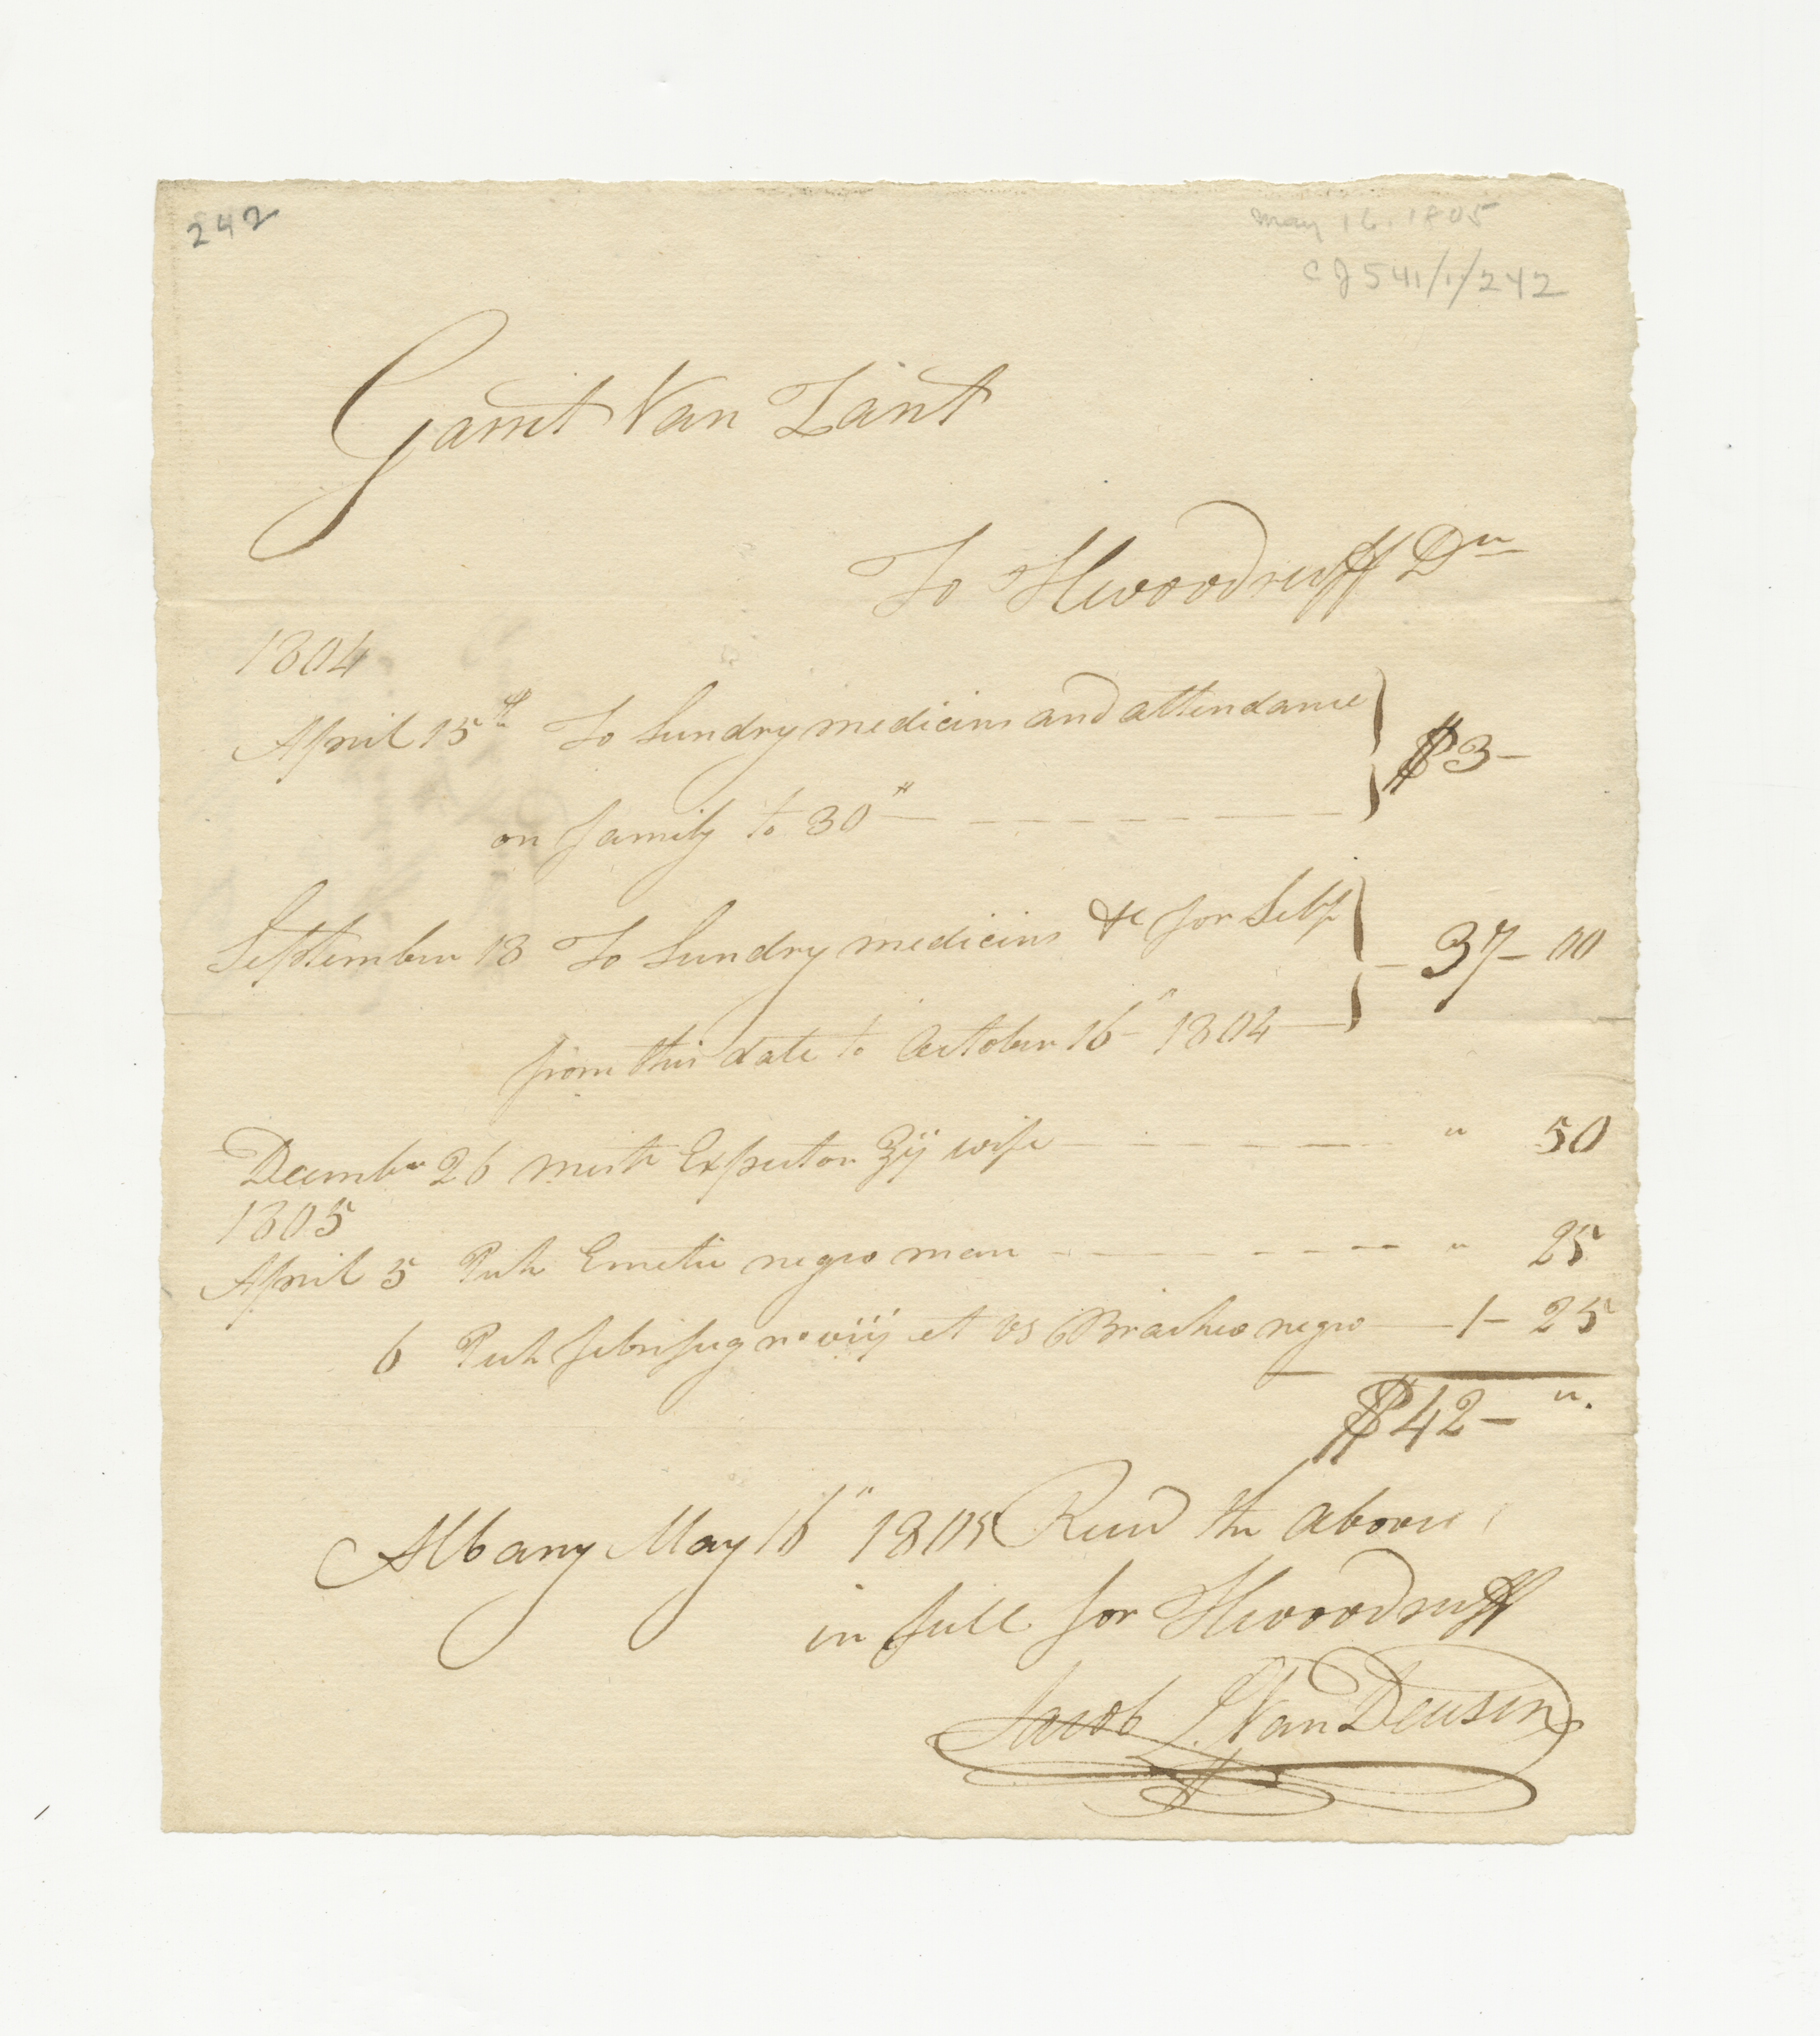 242
May 16. 1805
CJ541/1/242
Garrit Van Zant
To HWoodruff Dr
1804
April 15th To Sundry medicins and attendance
on family to 30th } $3-
September 18 To Sundry medicins &c for Self
from this date to October 16th 1804 } 37-00
Decembr 26 mist Expector ℥ij wife " 50
1805
April 5 Pulv Emetic negro man " 25
6 Pulv febrifug no viij et vs Brachio negro 1-25
$42- ".
Albany May 16th 1805 Recvd the above
in full for HWoodruff
Jacob L. Van Deusen